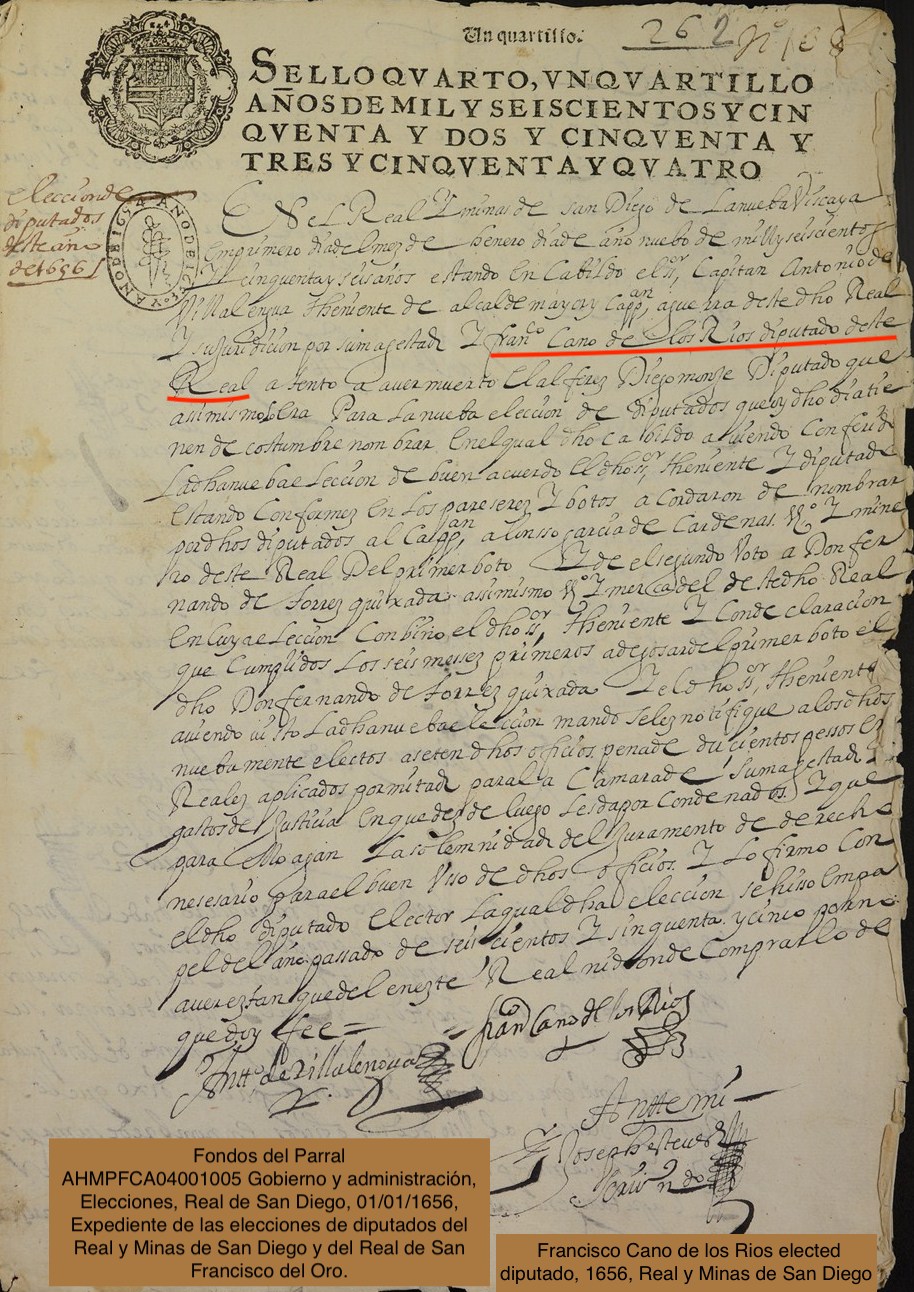 Un quartillo.
262
SELLO QVARTO, VN QVARTILLO
AÑOS DE MIL Y SEISCIENTOS Y CIN
QVENTA Y DOS Y CINQVENTA Y
TRES Y CINQVENTA Y QVATRO
eleccion de
diputados
deste año
de 1656
En el Real Y minas de san Diego de La nueba Viscaya
en primero dia del mez de Henero dia de año nuebo de mill y seiscientos
Y cinquenta y seis años estando en Cabildo el sr, Capitan Antonio de
Villalengua Theniente de alcalde mayor y Cappan, aguerra deste dho Real
Y su juridicion por su magestad Y franco Cano de los Rios diputado deste
Real atento a aver muerto El alferez Diego monje Diputado que
asimismo Era Para La nueba eleccion de diputados que oy dho dia tie
nen de costumbre nombrar En el qual dho cabildo aviendo Conferido
La dha nueba eLeccion de buen acuerdo El dho sr, Theniente Y diputado
estando Conformez en Los parecerez Y botos acordaron de nombrar
por dhos diputados al Cappan, alonsso garcia de Cardenas Vo Y mine
ro deste Real Del primer boto Y de el segundo Voto a Don fer
nando de Torrez quixada asimismo Vo Y mercadel deste dho Real
En Cuya eLeccion Conbino el dho sr, Theniente Y Con declaracion
que Cumplidos Los seis messez primeros a de josar del primer boto el
dho Don fernando de Torrez quixada Y el dho sr, Theniente
aviendo visto La dha nueba eLeccion mando se lez notifique a los dhos
nuebamente electos aseten dhos officios pena de ducientos pessos En
Realez aplicados por mitad para la Camara de Su magestad Y
gastos de Justicia En que desde luego Les da por Condenados Y que
para ello agan La solemnidad del Juramento de derecho
nesesario para el buen Usso de dhos officios Y Lo firmo Con
el dho diputado Elector La qual dha eleccion se hisso En pa
pel del año passado de seiscientos Y sinquenta y cinco por no
aver eztanque del en ezte Real ni donde Comprarlo de
que doy fee =
Antto de Villalengua
fran Cano de los Rios
Antte mi
Joseph esteves
Fondos del Parral
AHMPFCA04001005 Gobierno y administración,
Elecciones, Real de San Diego, 01/01/1656,
Expediente de las elecciones de diputados del
Real y Minas de San Diego y del Real de San
Francisco del Oro.
Francisco Cano de los Rios elected
diputado, 1656, Real y Minas de San Diego